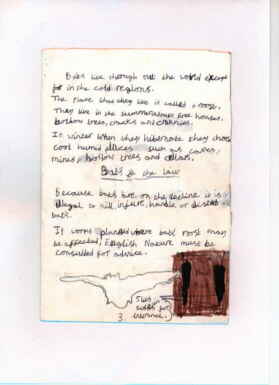 Bats live through out the world except
for in the cold regions.
The place that they live is called a roost.
They live in the summer house tree houses,
hollow trees, cracks and crannies.
In winter when they hibernate they choose
cool humid places such as caves,
mines, hollow trees and cellars.
Bats & the law
because bats are on the decline it is
illegal to kill, injure, handle or disturb
bats.
If work planned where bats roost may
be affected, English Nature must be
consulted for advice.
3